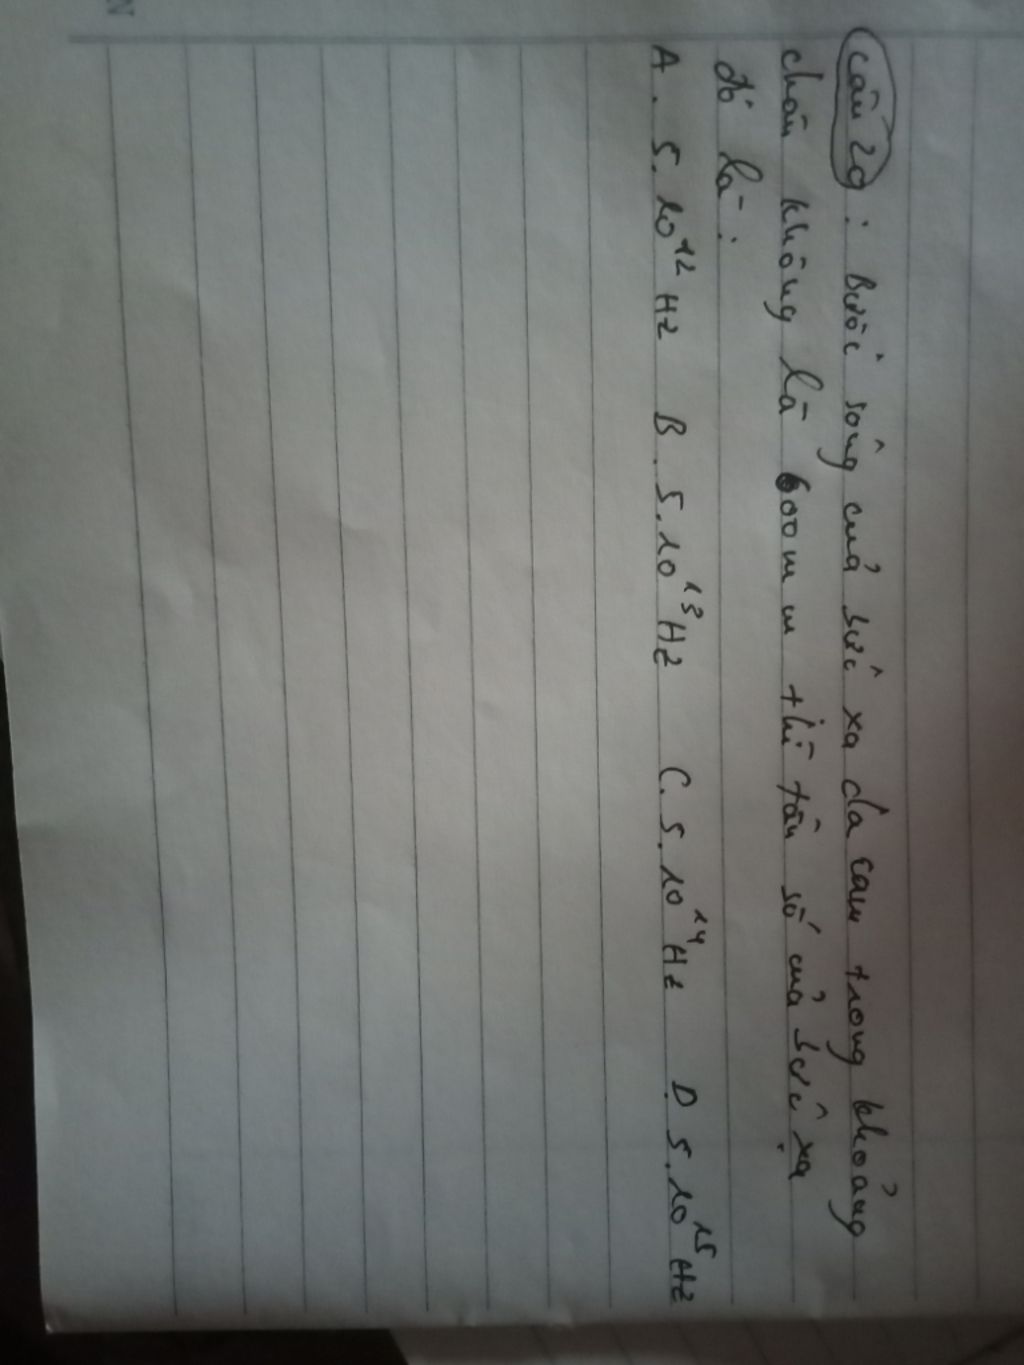 Câu 29 : Bước sóng của bức xạ da cam trong khoảng
chân không là 600nm thì tần số của bức xạ
đó là :
A. 5.10¹² Hz B. 5.10¹³ Hz C. 5.10¹⁴ Hz D 5.10¹⁵ Hz
N